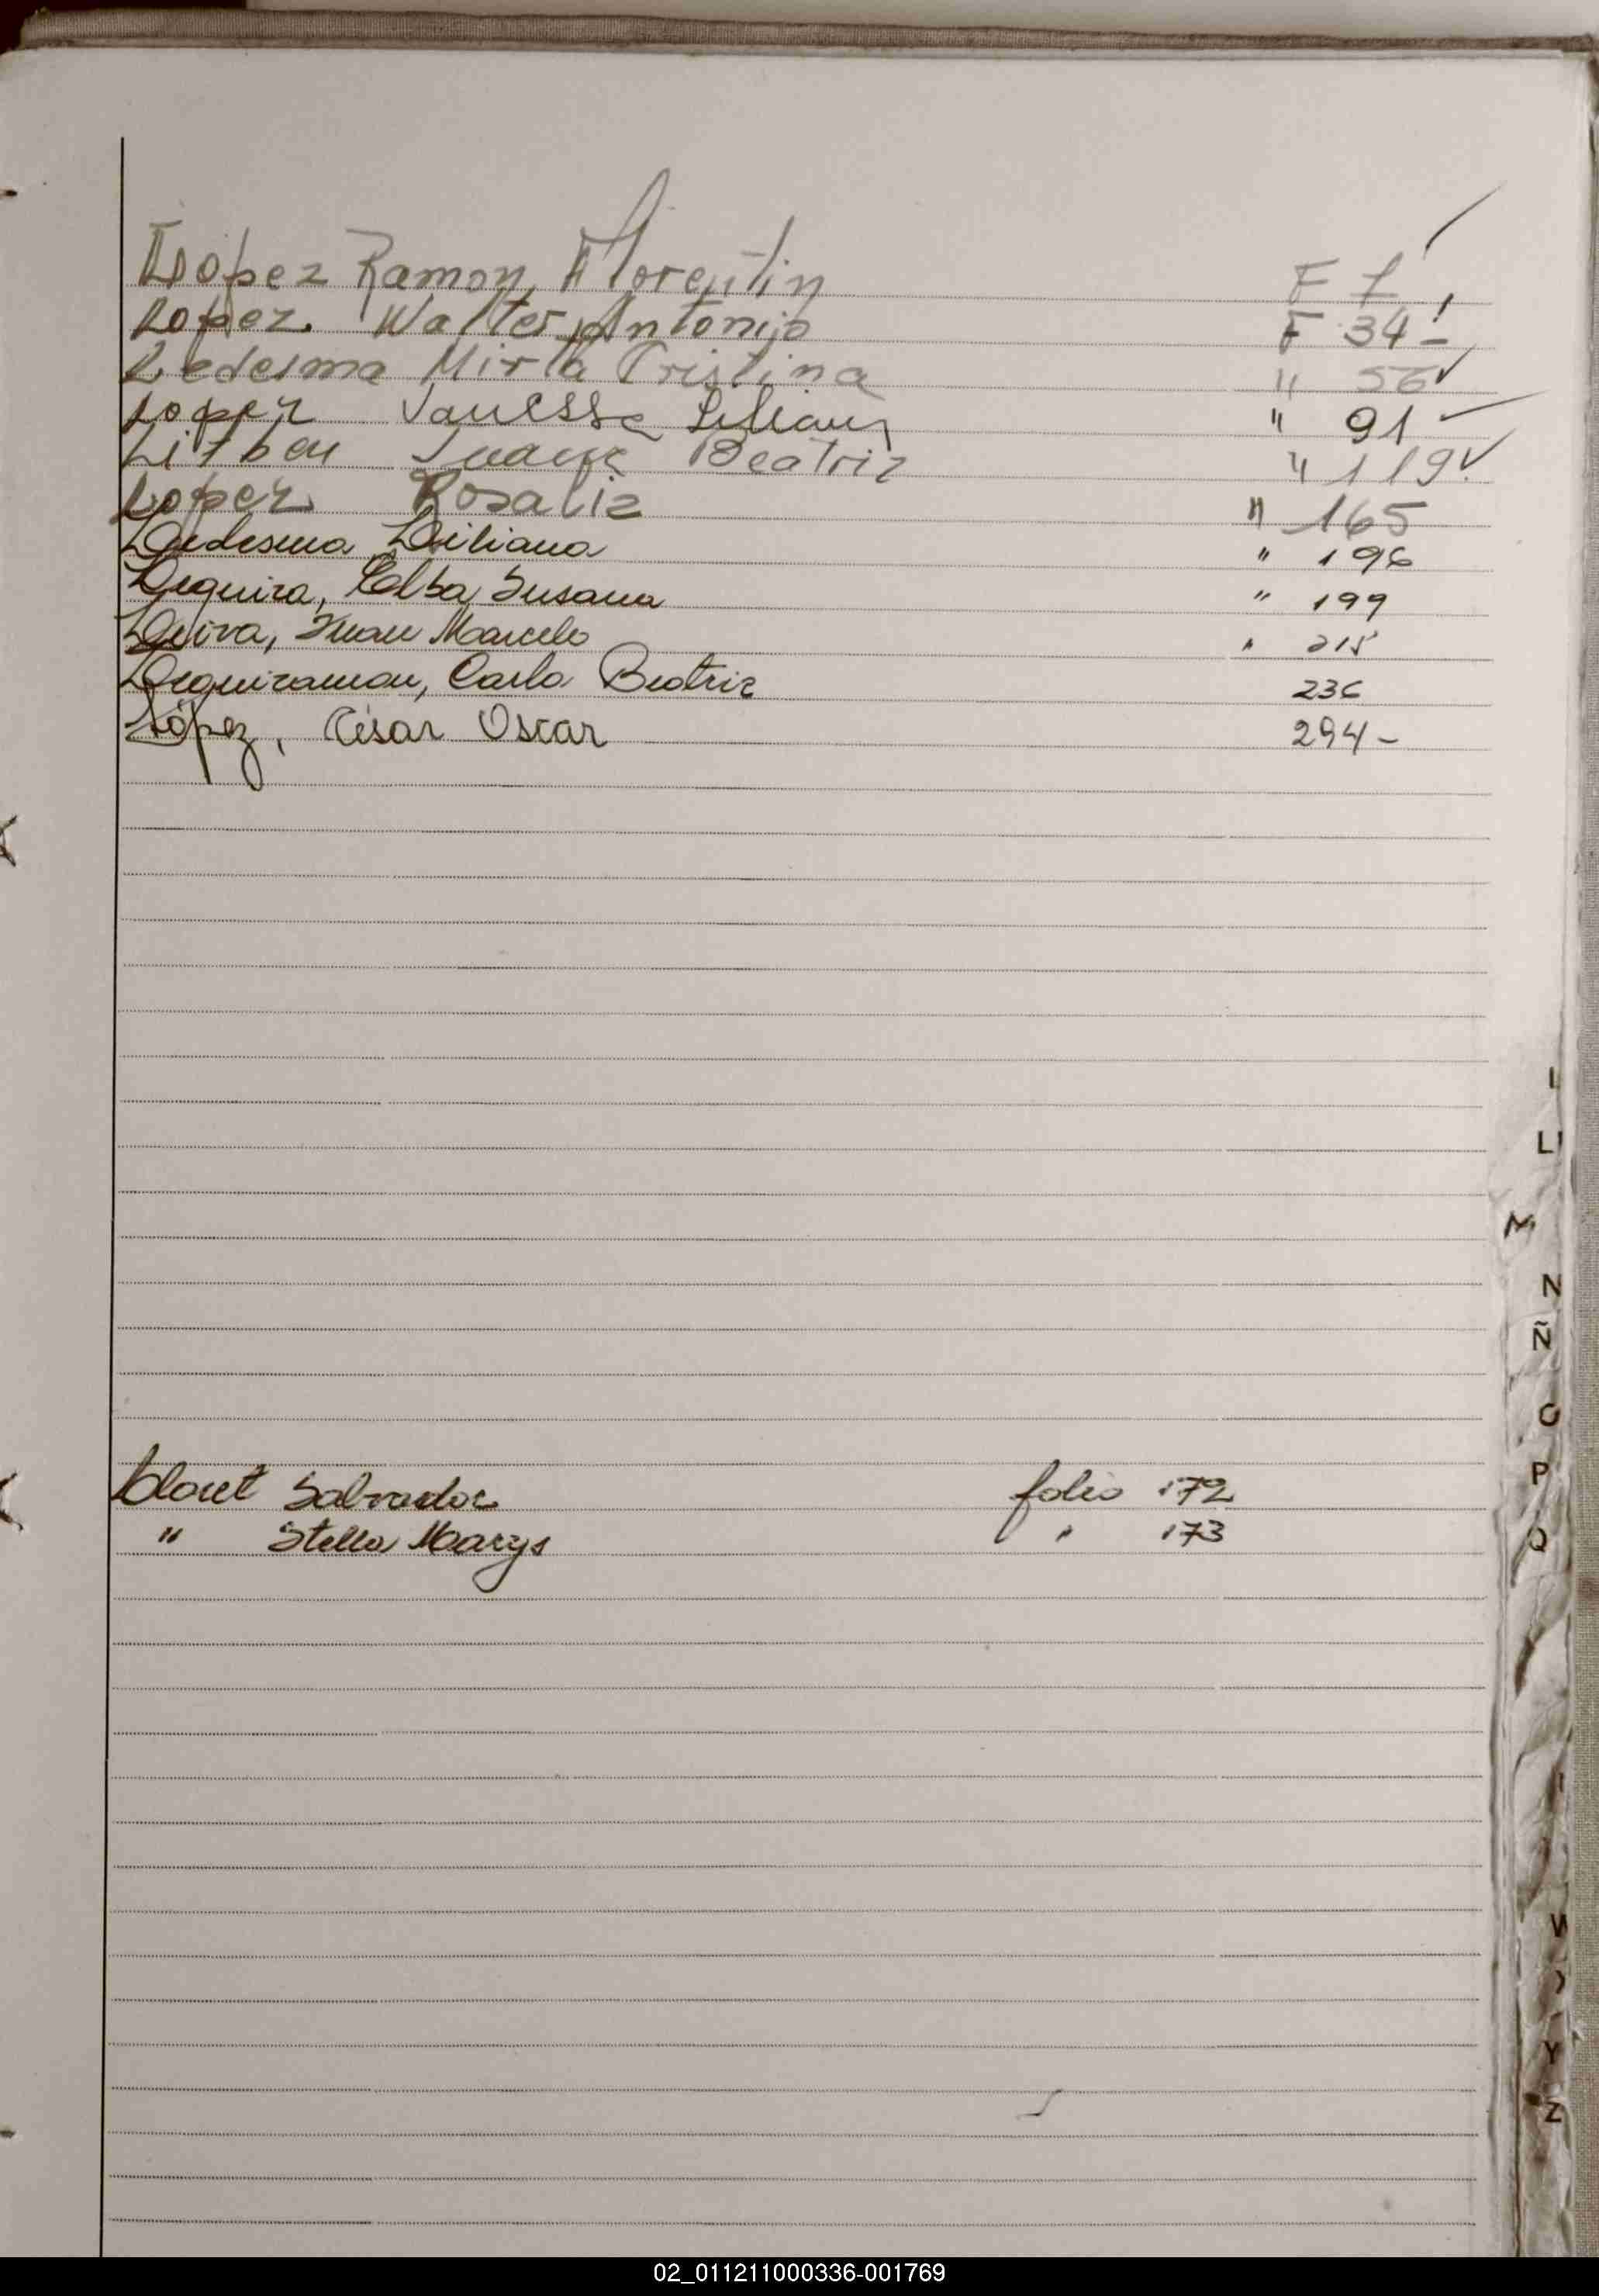 Lopez Ramon Florentin F 1
Lopez. Walter Antonio F 34 -
Ledesma Mirta Cristina " 56 ✓
Lopez Vanessa Liliana " 91
Beatriz " 119 ✓
Lopez Rosalia " 165
Ledesma Liliana " 196
Leguiza, Elba Susana " 199
Leiva, Juan Marcelo " 215
Leguizamon, Carlo Beatriz 236
López, César Oscar 294 -
Lloret Salvador folio 172
" Stella Marys " 173
I
L
M
N
Ñ
O
P
Q
W
Y
Z
02_011211000336-001769